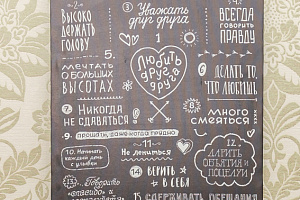 2.
ВЫСОКО
ДЕРЖАТЬ
ГОЛОВУ
3 Уважать
друг друга
4.
ВСЕГДА
ГОВОРИТЬ
ПРАВДУ
1
Любить
друг
друга
5.
МЕЧТАТЬ
О БОЛЬШИХ
ВЫСОТАХ
6
ДЕЛАТЬ ТО,
ЧТО ЛЮБИШЬ
7. Никогда
НЕ СДАВАТЬСЯ!
8
МНОГО
СМЕЯТЬСЯ
9. прощать, даже когда трудно
10. Начинать
каждый день
с улыбки
11
Не лениться
12.
ДАРИТЬ
ОБЪЯТИЯ И
ПОЦЕЛУИ
13. Говорить
«спасибо» и
14 ВЕРИТЬ
В СЕБЯ
15 СДЕРЖИВАТЬ ОБЕЩАНИЯ